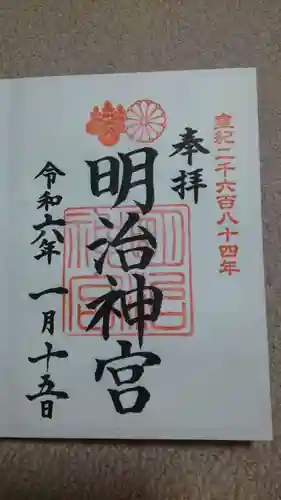 皇紀二千六百八十四年
奉拝
明治神宮
令和六年 一月十五日